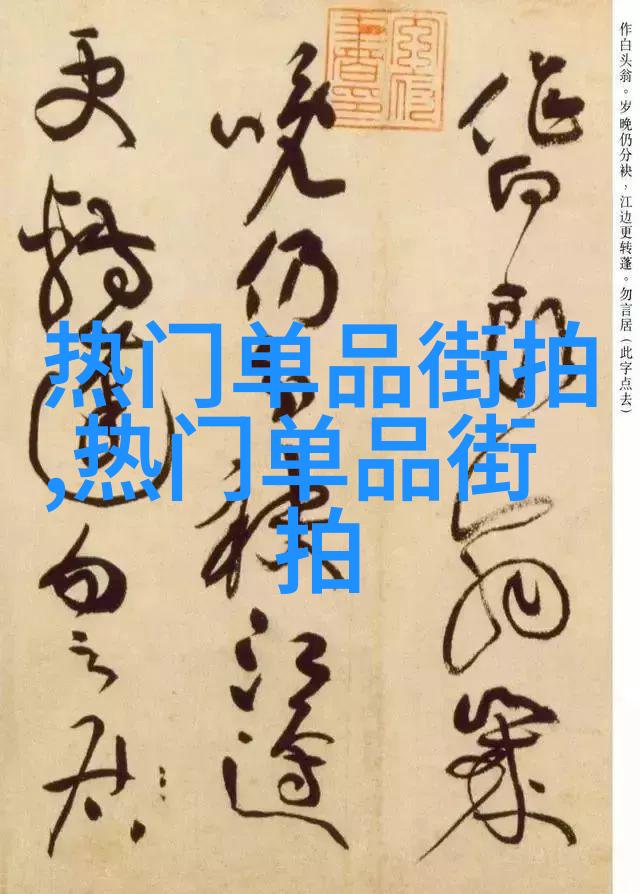 作白头翁。岁晚仍分袂，江边更转蓬。勿言居（此字点去）
作白头翁岁
晚仍分袂江边
更转蓬勿言居
热门单品街拍
,热门单品街
拍